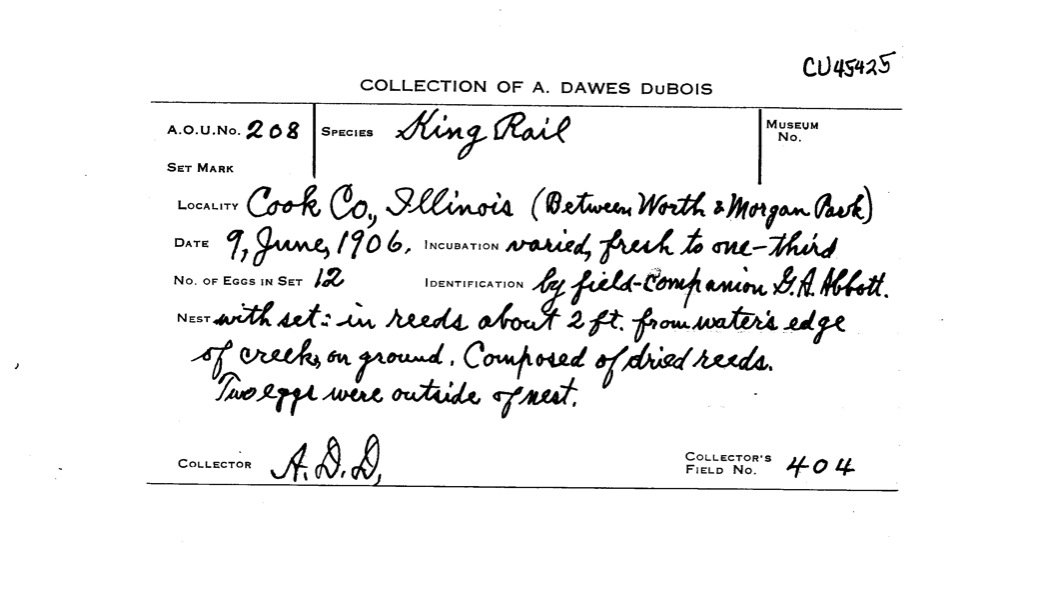 CU45425
COLLECTION OF A. DAWES DUBOIS
A.O.U.No. 208 SPECIES King Rail MUSEUM No.
SET MARK
LOCALITY Cook Co., Illinois (Between Worth & Morgan Park)
DATE 9, June, 1906. INCUBATION varied, fresh to one-third
NO. OF EGGS IN SET 12 IDENTIFICATION by field-companion G.A. Abbott.
NEST with set: in reeds about 2 ft. from water's edge
of creek, on ground. Composed of dried reeds.
Two eggs were outside of nest.
COLLECTOR A.D.D. COLLECTOR'S FIELD NO. 404